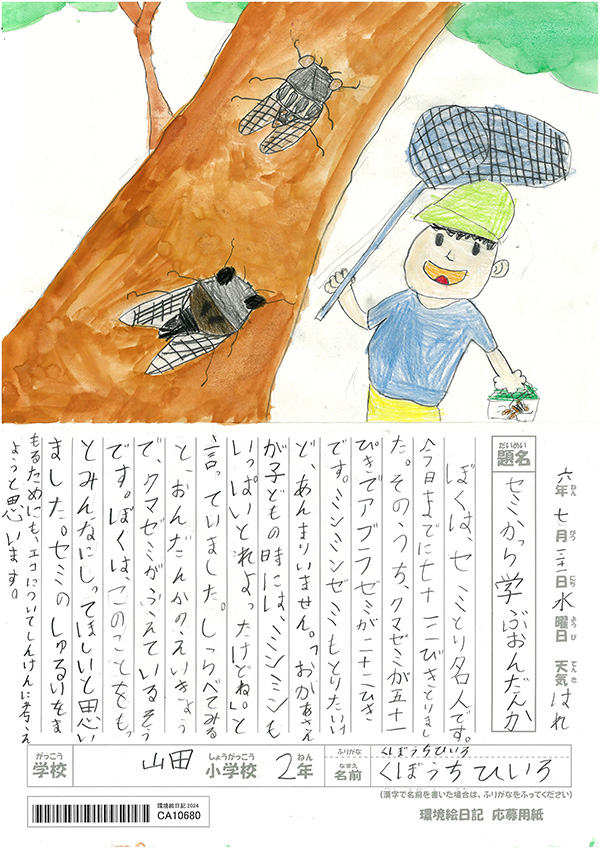 六年 七月 三十一日 水曜日 天気 はれ
ねん がつ にち よう び てん き
だいめい
題名 セミから学ぶおんだんか
ぼくは、セミとり名人です。
今日までに七十三びきとりまし
た。そのうち、クマゼミが五十一
ぴきでアブラゼミが二十二ひき
です。ミンミンゼミもとりたいけ
ど、あんまりいません。「おかあさん
が子どもの時には、ミンミンミンも
いっぱいとれよったけどね。」と
言っていました。しらべてみる
と、おんだんかのえいきょう
で、クマゼミがふえているそう
です。ぼくは、このことをもっ
とみんなにしってほしいと思い
ました。セミのしゅるいをま
もるためにも、エコについてしんけんに考え
ようと思います。
がっこう しょうがっこう ねん ふりがな くぼうちひいろ
学校 山田 小学校 2年 なまえ 名前 くぼうちひいろ
(漢字で名前を書いた場合は、ふりがなをふってください)
環境絵日記 2024
CA10680
環境絵日記 応募用紙